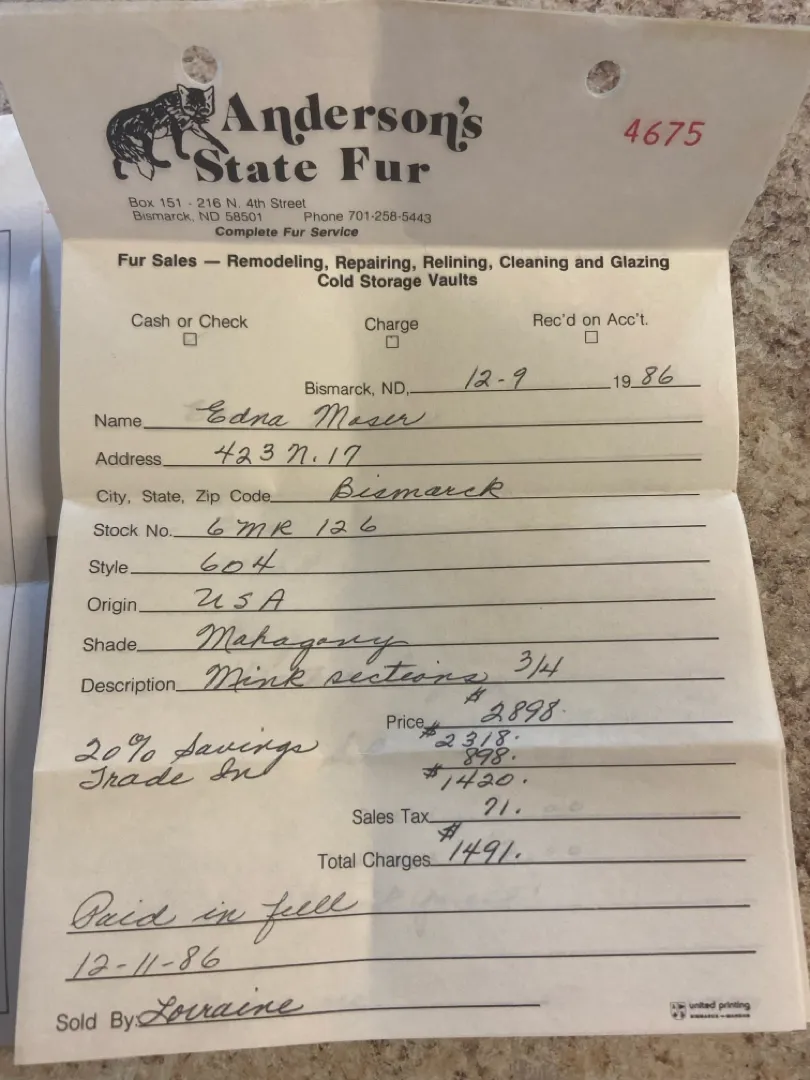 Anderson's
State Fur
4675
Box 151 - 216 N. 4th Street
Bismarck, ND 58501 Phone 701-258-5443
Complete Fur Service
Fur Sales — Remodeling, Repairing, Relining, Cleaning and Glazing
Cold Storage Vaults
Cash or Check Charge Rec'd on Acc't.
Bismarck, ND, 12-9 19 86
Name Edna Moser
Address 423 N. 17
City, State, Zip Code Bismarck
Stock No. 6 MR 126
Style 604
Origin USA
Shade Mahagany
Description Mink sections 3/4
Price $2898.
20% Savings $2318.
Trade In 898.
$1420.
Sales Tax 71.
Total Charges $1491.
Paid in full
12-11-86
Sold By: Lorraine
united printing
BISMARCK — MANDAN